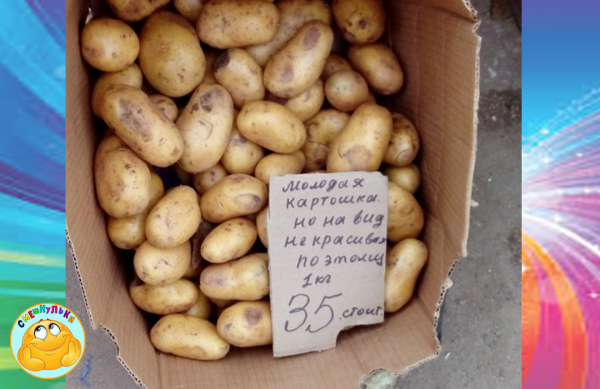 молодая
картошка.
но на вид
не красивая
поэтому
1 кг
35 стоит.
СМЕШНУЛЬКИ